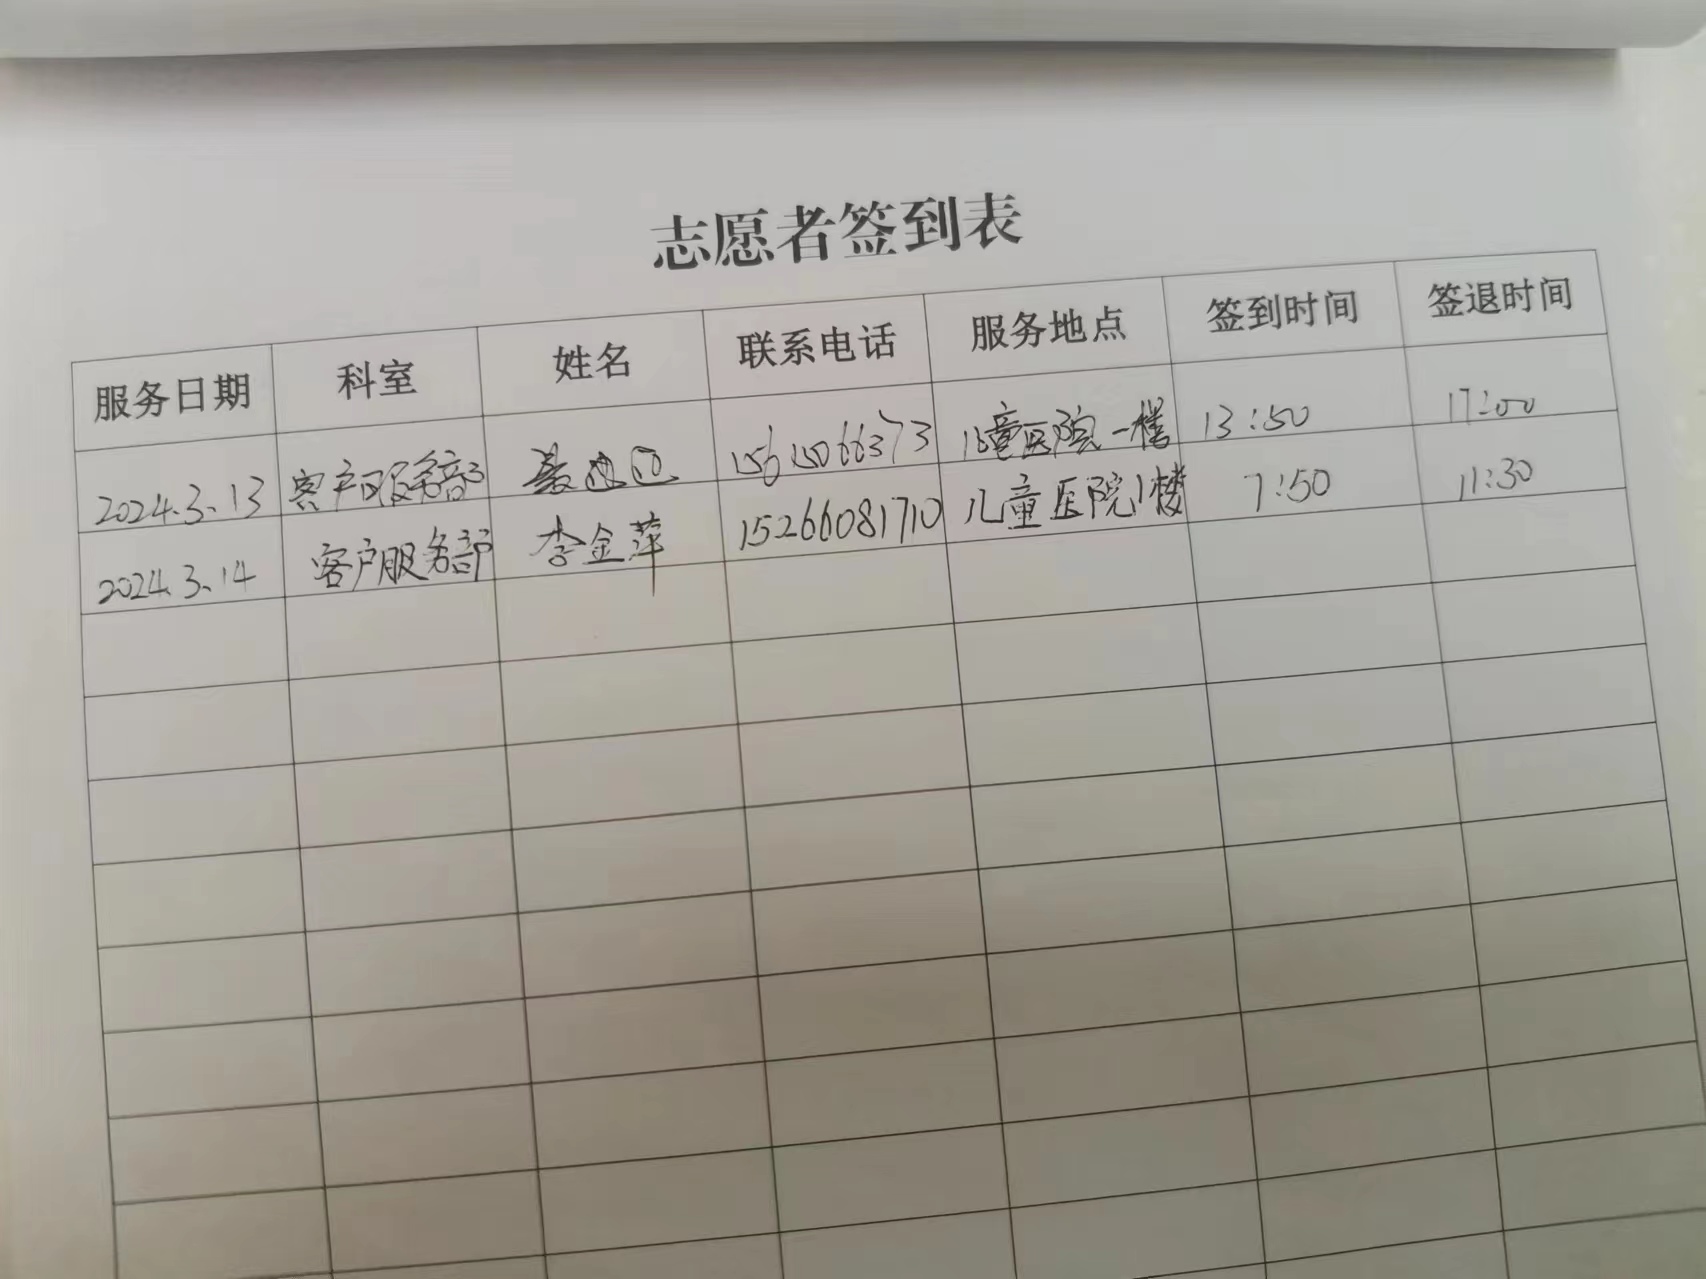 志愿者签到表
服务日期 科室 姓名 联系电话 服务地点 签到时间 签退时间
2024.3.13 客户服务部 15615066373 儿童医院一楼 13:50 17:00
2024.3.14 客户服务部 李金萍 15266081710 儿童医院1楼 7:50 11:30